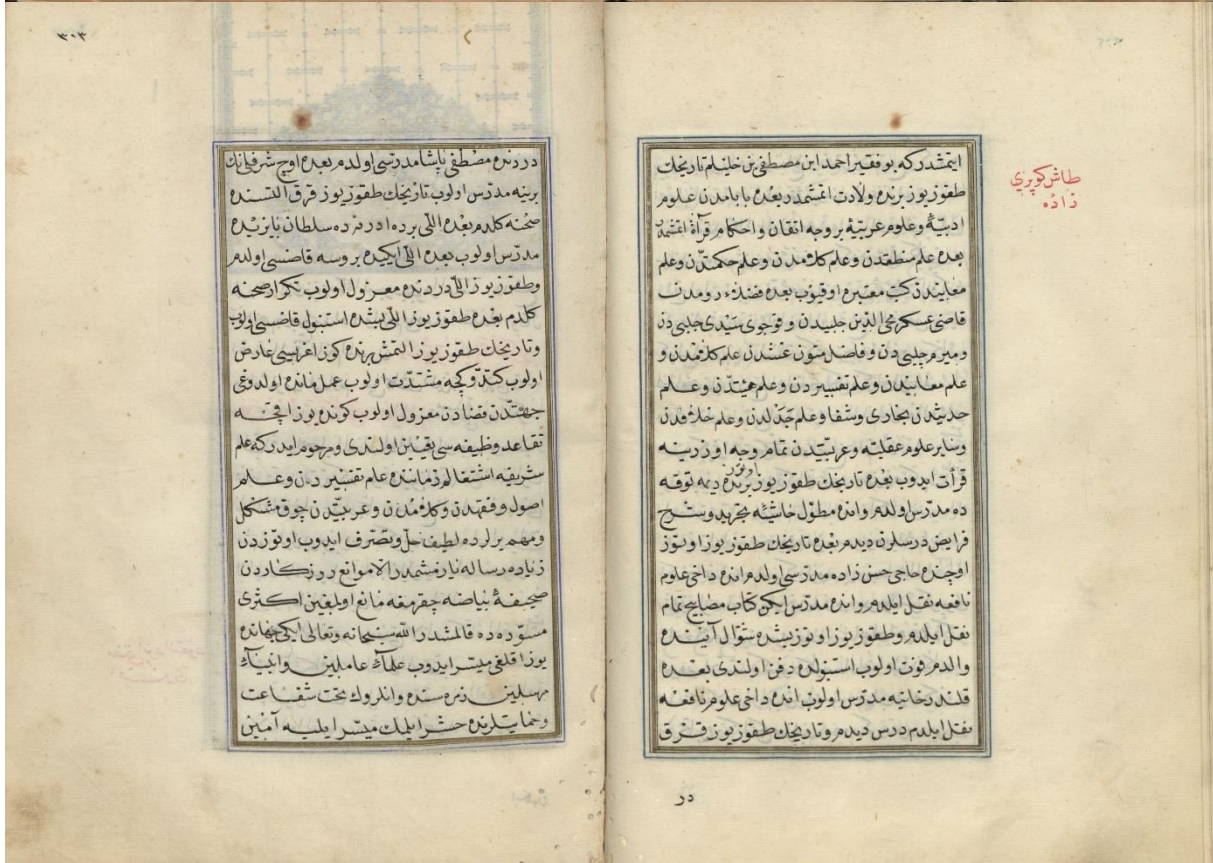 طاش كوپري
زاده
ايتمشدر كه بو فقير احمد ابن مصطفى بن خليلم تاريخك
طقوز يوز برنده ولادت اتمشمدر بعده بابامدن علوم
ادبيّۀ وعلوم عربيّۀ بر وجه اتقان واحكام قرأة اتمشمدر
بعده علم منطقدن وعلم كلامدن وعلم حكمتدن وعلم
معانيدن كتب معتبره اوقيوب بعده فضلاء رومدن
قاضى عسكر محى الدين چلبيدن وقوجوى سيّدى چلبى دن
وميرم چلبى دن وفاضل متون غشدن علم كلامدن و
علم معانيدن وعلم تفسيردن وعلم هيئتدن وعلم
حديثدن بخارى وشفا وعلم جدلدن وعلم خلافدن
وساير علوم عقليّه وعربيّتدن تمام وجه اوزرينه
قرأت ايدوب بعده تاريخك طقوز يوز اوتوز برنده ديمه توقه
ده مدرّس اولدم وانده مطوّل حاشيۀ تجريد وشرح
فرايض درسلرن ديدم بعده تاريخك طقوز يوز اوتوز
اوچنده حاجى حسن زاده مدرسى اولدم انده داخى علوم
نافعه نقل ايلدم وانده مدرّس ايكن كتاب مصابيح تمام
نقل ايلدم وطقوز يوز اوتوز بشده شوّال آينده
والدم فوت اولوب استنبولده دفن اولندى بعده
قلندرخانيه مدرّس اولوب انده داخى علوم نافعه
نقل ايلدم درس ديدم وتاريخك طقوز يوز قرق
در
٣٠٣
دردنده مصطفى پاشا مدرسى اولدم بعده اوچ شرفليانك
برينه مدرّس اولوب تاريخك طقوز يوز قرق التسنده
صحنه كلدم بعده اللى برده ادرنه ده سلطان بايزيده
مدرّس اولوب بعده اللى ايكيده بروسه قاضسى اولدم
وطقوز يوز اللى دردنده معزول اولوب تكرار صحنه
كلدم بعده طقوز يوز اللى بشده استنبول قاضسى اولوب
وتاريخك طقوز يوز التمش برنده كوز اغريسى عارض
اولوب كتدوكچه مشتدّت اولوب عمل مانده اولدوغى
جهتدن قضادن معزول اولوب كونده يوز اقچه
تقاعد وظيفه سى تعيين اولندى ومرحوم ايدر كه علم
شريفه اشتغالم زماننده علم تفسيردن وعلم
اصول وفقهدن وكلامدن وعربيّتدن چوق مشكل
ومهم يرلرده لطيف حلّ وتصرّف ايدوب اوتوزدن
زياده رساله يازمشمدر الا موانع روزكاردن
صحيفۀ بياضه چقرمغه مانع اولمغين اكثرى
مسوّده ده قالمشدر الله سبحانه وتعالى ايكى جهانده
يوز اقلغى ميسّر ايدوب علماء عاملين وانبياء
مرسلين زمره سنده وانلروك تحت شفاعت
وحمايتلرنده حشر ايلمك ميسّر ايليه آمين